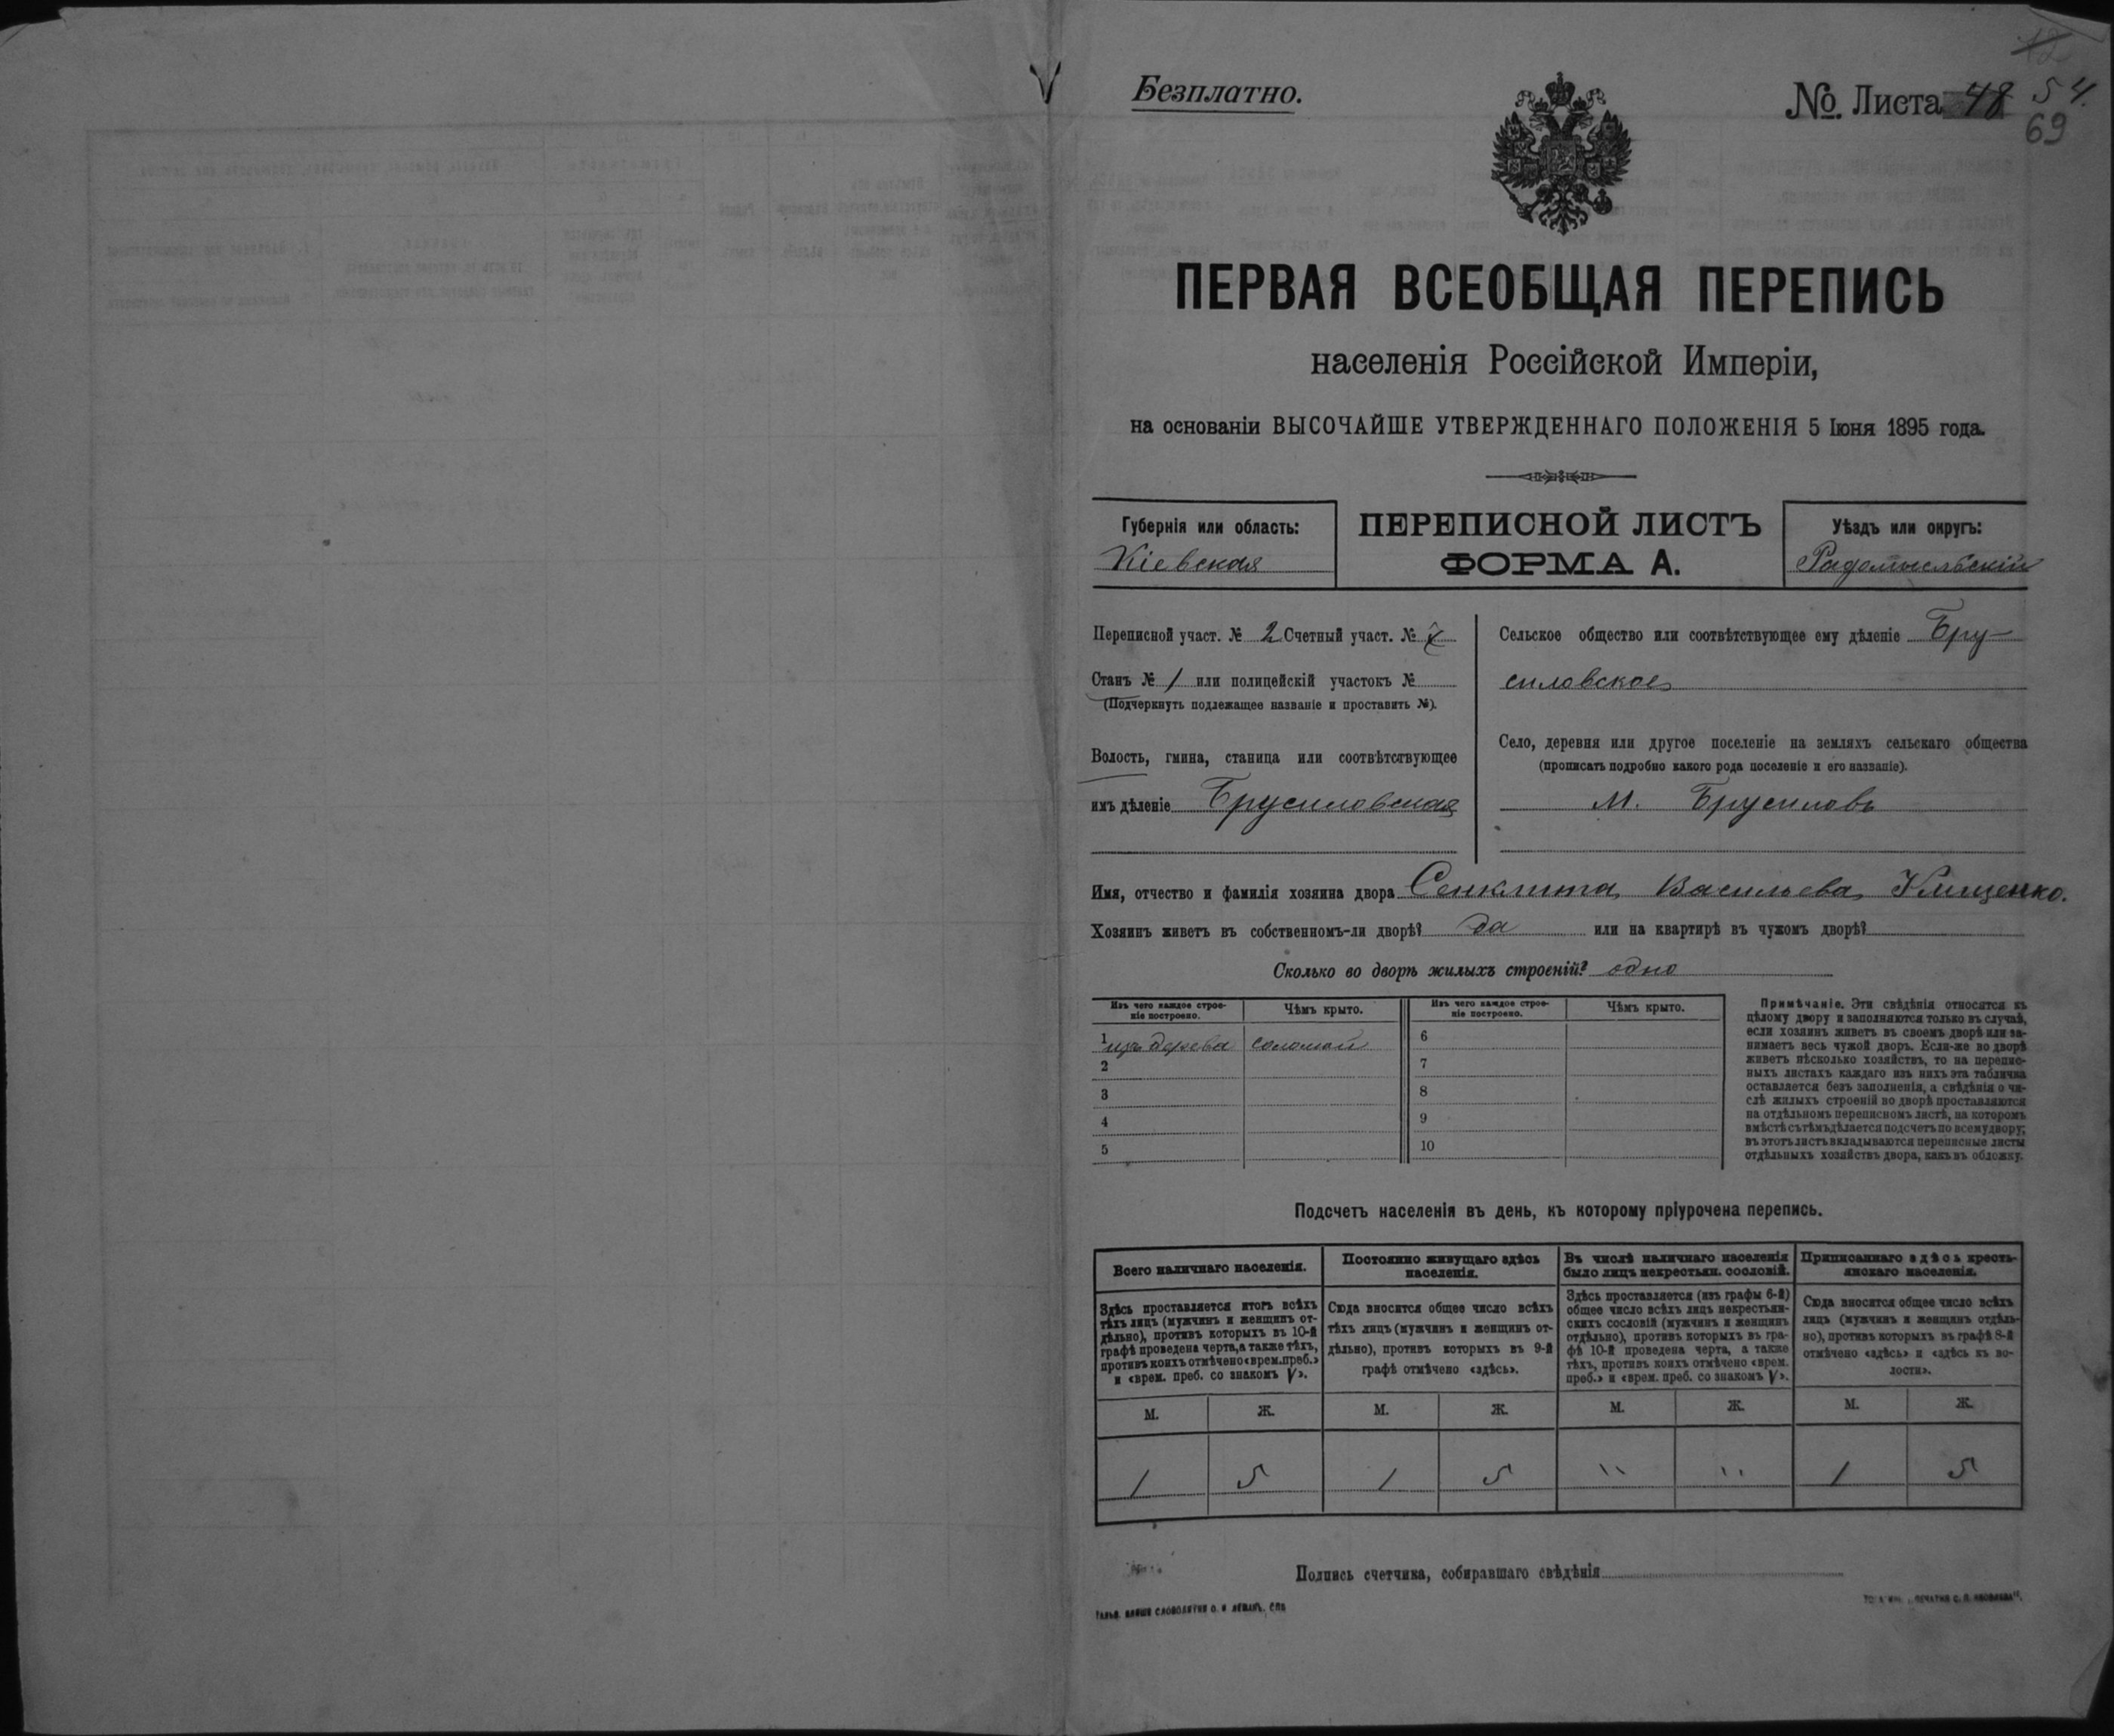 Безплатно.
№ Листа 48
54.
69
12
ПЕРВАЯ ВСЕОБЩАЯ ПЕРЕПИСЬ
населенія Россійской Имперіи,
на основаніи ВЫСОЧАЙШЕ УТВЕРЖДЕННАГО ПОЛОЖЕНІЯ 5 Іюня 1895 года.
Губернія или область:
Кіевская
ПЕРЕПИСНОЙ ЛИСТЪ
ФОРМА А.
Уѣздъ или округъ:
Радомысльскій
Переписной участ. № 2 Счетный участ. №
Станъ № 1 или полицейскій участокъ №
(Подчеркнуть подлежащее названіе и проставить №).
Волость, гмина, станица или соотвѣтствующее
имъ дѣленіе Брусиловская
Сельское общество или соотвѣтствующее ему дѣленіе Бру-
силовское
Село, деревня или другое поселеніе на земляхъ сельскаго общества
(прописать подробно какого рода поселеніе и его названіе).
М. Брусиловъ
Имя, отчество и фамилія хозяина двора Сенклита Васильева Клищенко.
Хозяинъ живетъ въ собственномъ-ли дворѣ? да или на квартирѣ въ чужомъ дворѣ?
Сколько во дворѣ жилыхъ строеній? одно
Изъ чего каждое строе-
ніе построено.
Чѣмъ крыто.
Изъ чего каждое строе-
ніе построено.
Чѣмъ крыто.
1 изъ дерева соломой
2
3
4
5
6
7
8
9
10
Примѣчаніе. Эти свѣдѣнія относятся къ
цѣлому двору и заполняются только въ случаѣ,
если хозяинъ живетъ въ своемъ дворѣ или за-
нимаетъ весь чужой дворъ. Если-же во дворѣ
живетъ нѣсколько хозяйствъ, то на перепис-
ныхъ листахъ каждаго изъ нихъ эта табличка
оставляется безъ заполненія, а свѣдѣнія о чи-
слѣ жилыхъ строеній во дворѣ проставляются
на отдѣльномъ переписномъ листѣ, на которомъ
вмѣстѣ съ тѣмъ дѣлается подсчетъ по всему двору;
въ этотъ листъ вкладываются переписные листы
отдѣльныхъ хозяйствъ двора, какъ въ обложку.
Подсчетъ населенія въ день, къ которому пріурочена перепись.
Всего наличнаго населенія.
Здѣсь проставляется итогъ всѣхъ
тѣхъ лицъ (мужчинъ и женщинъ от-
дѣльно), противъ которыхъ въ 10-й
графѣ проведена черта, а также тѣхъ,
противъ коихъ отмѣчено «врем. преб.»
и «врем. преб. со знакомъ V».
Постоянно живущаго здѣсь
населенія.
Сюда вносится общее число всѣхъ
тѣхъ лицъ (мужчинъ и женщинъ от-
дѣльно), противъ которыхъ въ 9-й
графѣ отмѣчено «здѣсь».
Въ числѣ наличнаго населенія
было лицъ некрестьян. сословій.
Здѣсь проставляется (изъ графы 6-й)
общее число всѣхъ лицъ некрестьян-
скихъ сословій (мужчинъ и женщинъ
отдѣльно), противъ которыхъ въ гра-
фѣ 10-й проведена черта, а также
тѣхъ, противъ коихъ отмѣчено «врем.
преб.» и «врем. преб. со знакомъ V».
Приписаннаго здѣсь кресть-
янскаго населенія.
Сюда вносится общее число всѣхъ
лицъ (мужчинъ и женщинъ отдѣль-
но), противъ которыхъ въ графѣ 8-й
отмѣчено «здѣсь» и «здѣсь къ во-
лости».
М. Ж. М. Ж. М. Ж. М. Ж.
1 5 1 5 " " 1 5
Подпись счетчика, собиравшаго свѣдѣнія